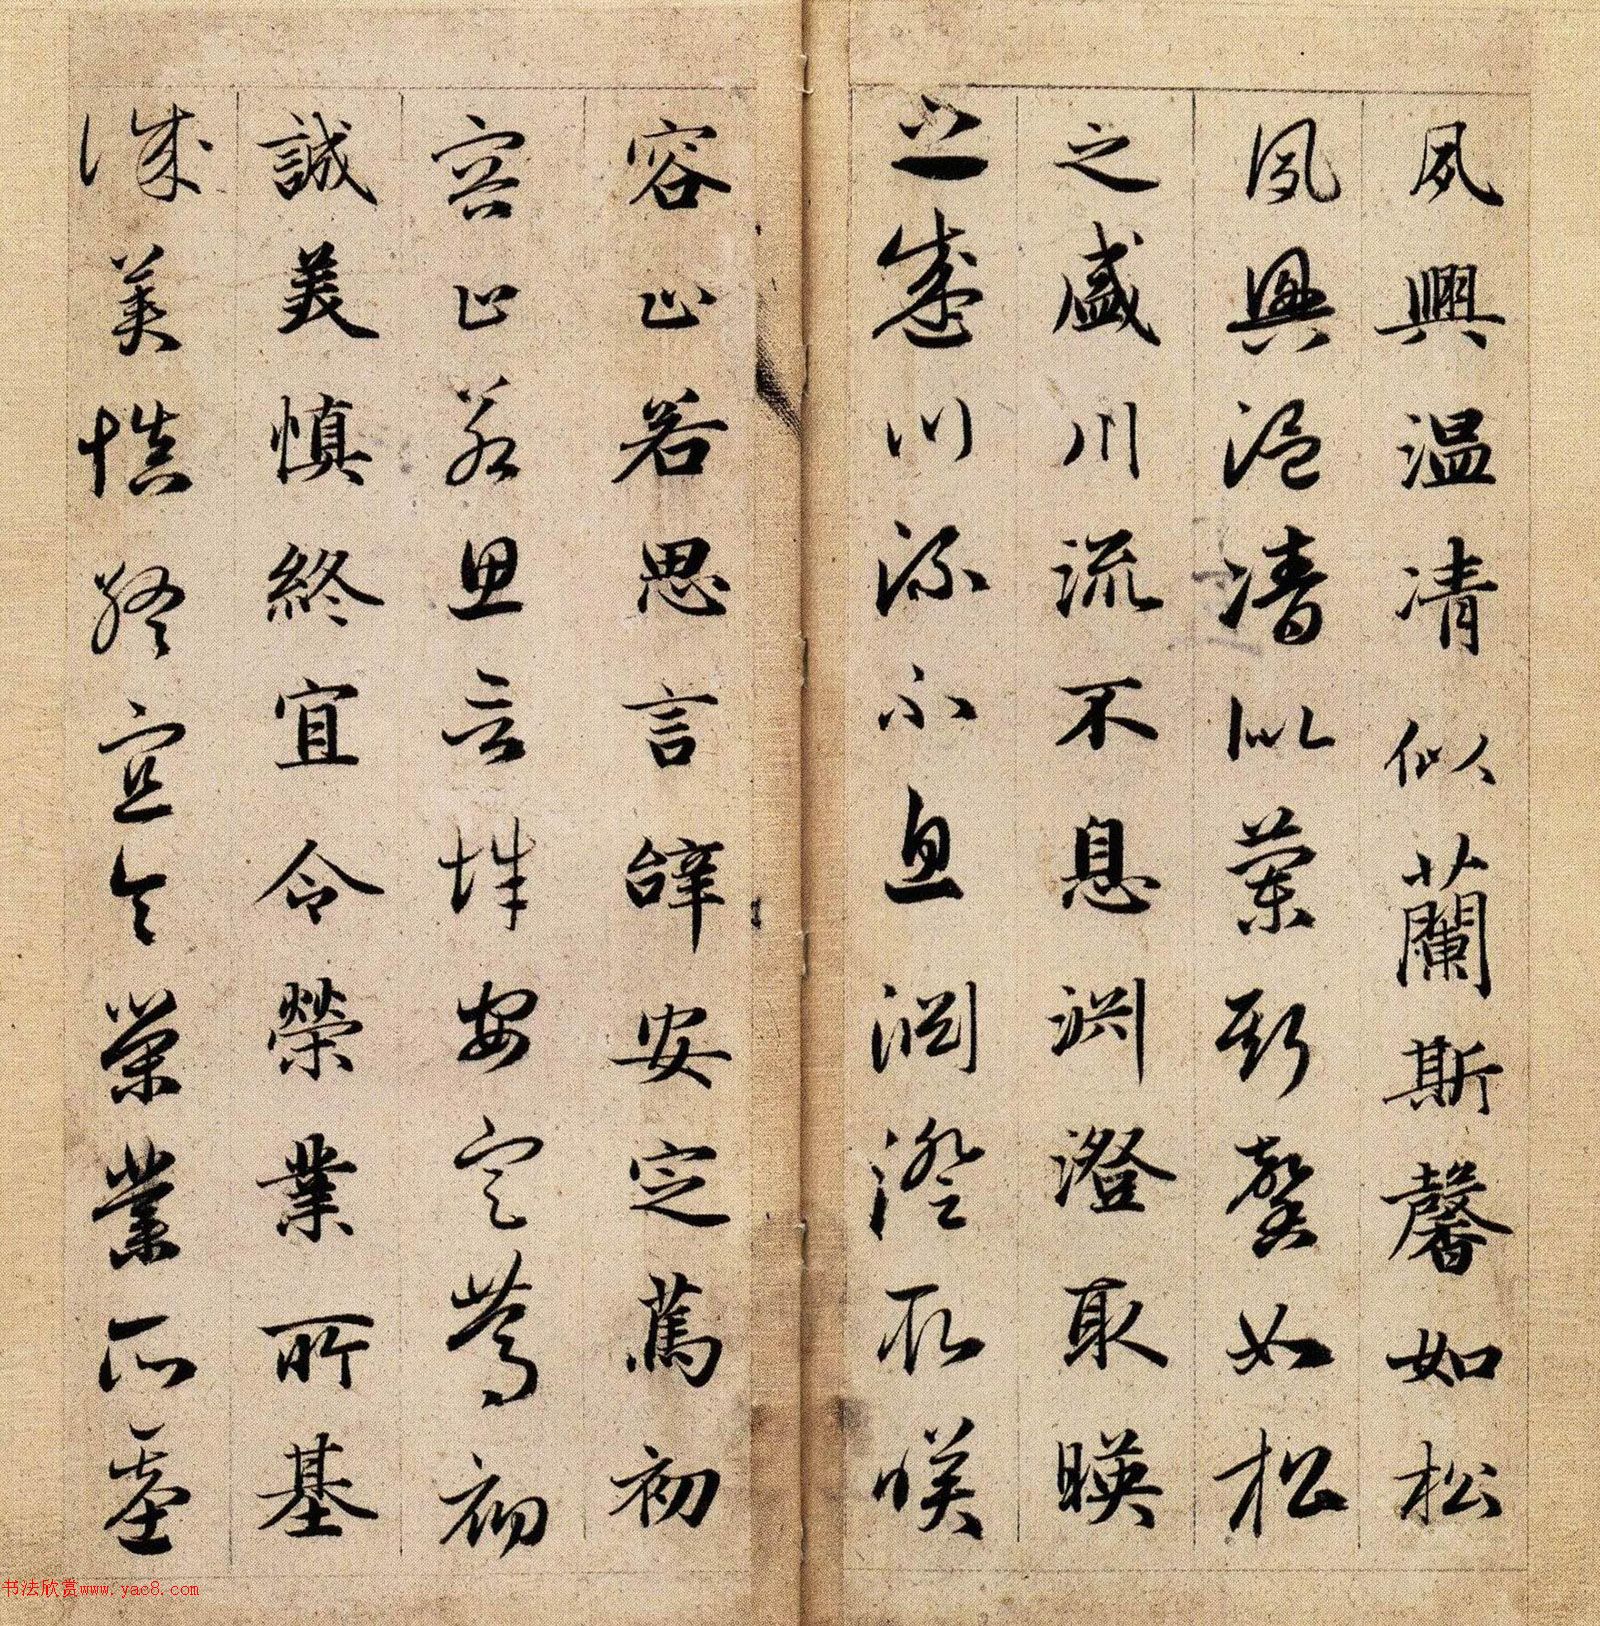 夙興温凊似蘭斯馨如松
夙興温凊似蘭斯馨如松
之盛川流不息淵澄取暎
之盛川流不息淵澄取暎
容止若思言辭安定篤初
容止若思言辭安定篤初
誠美慎終宜令榮業所基
誠美慎終宜令榮業所基
书法欣赏www.yac8.com